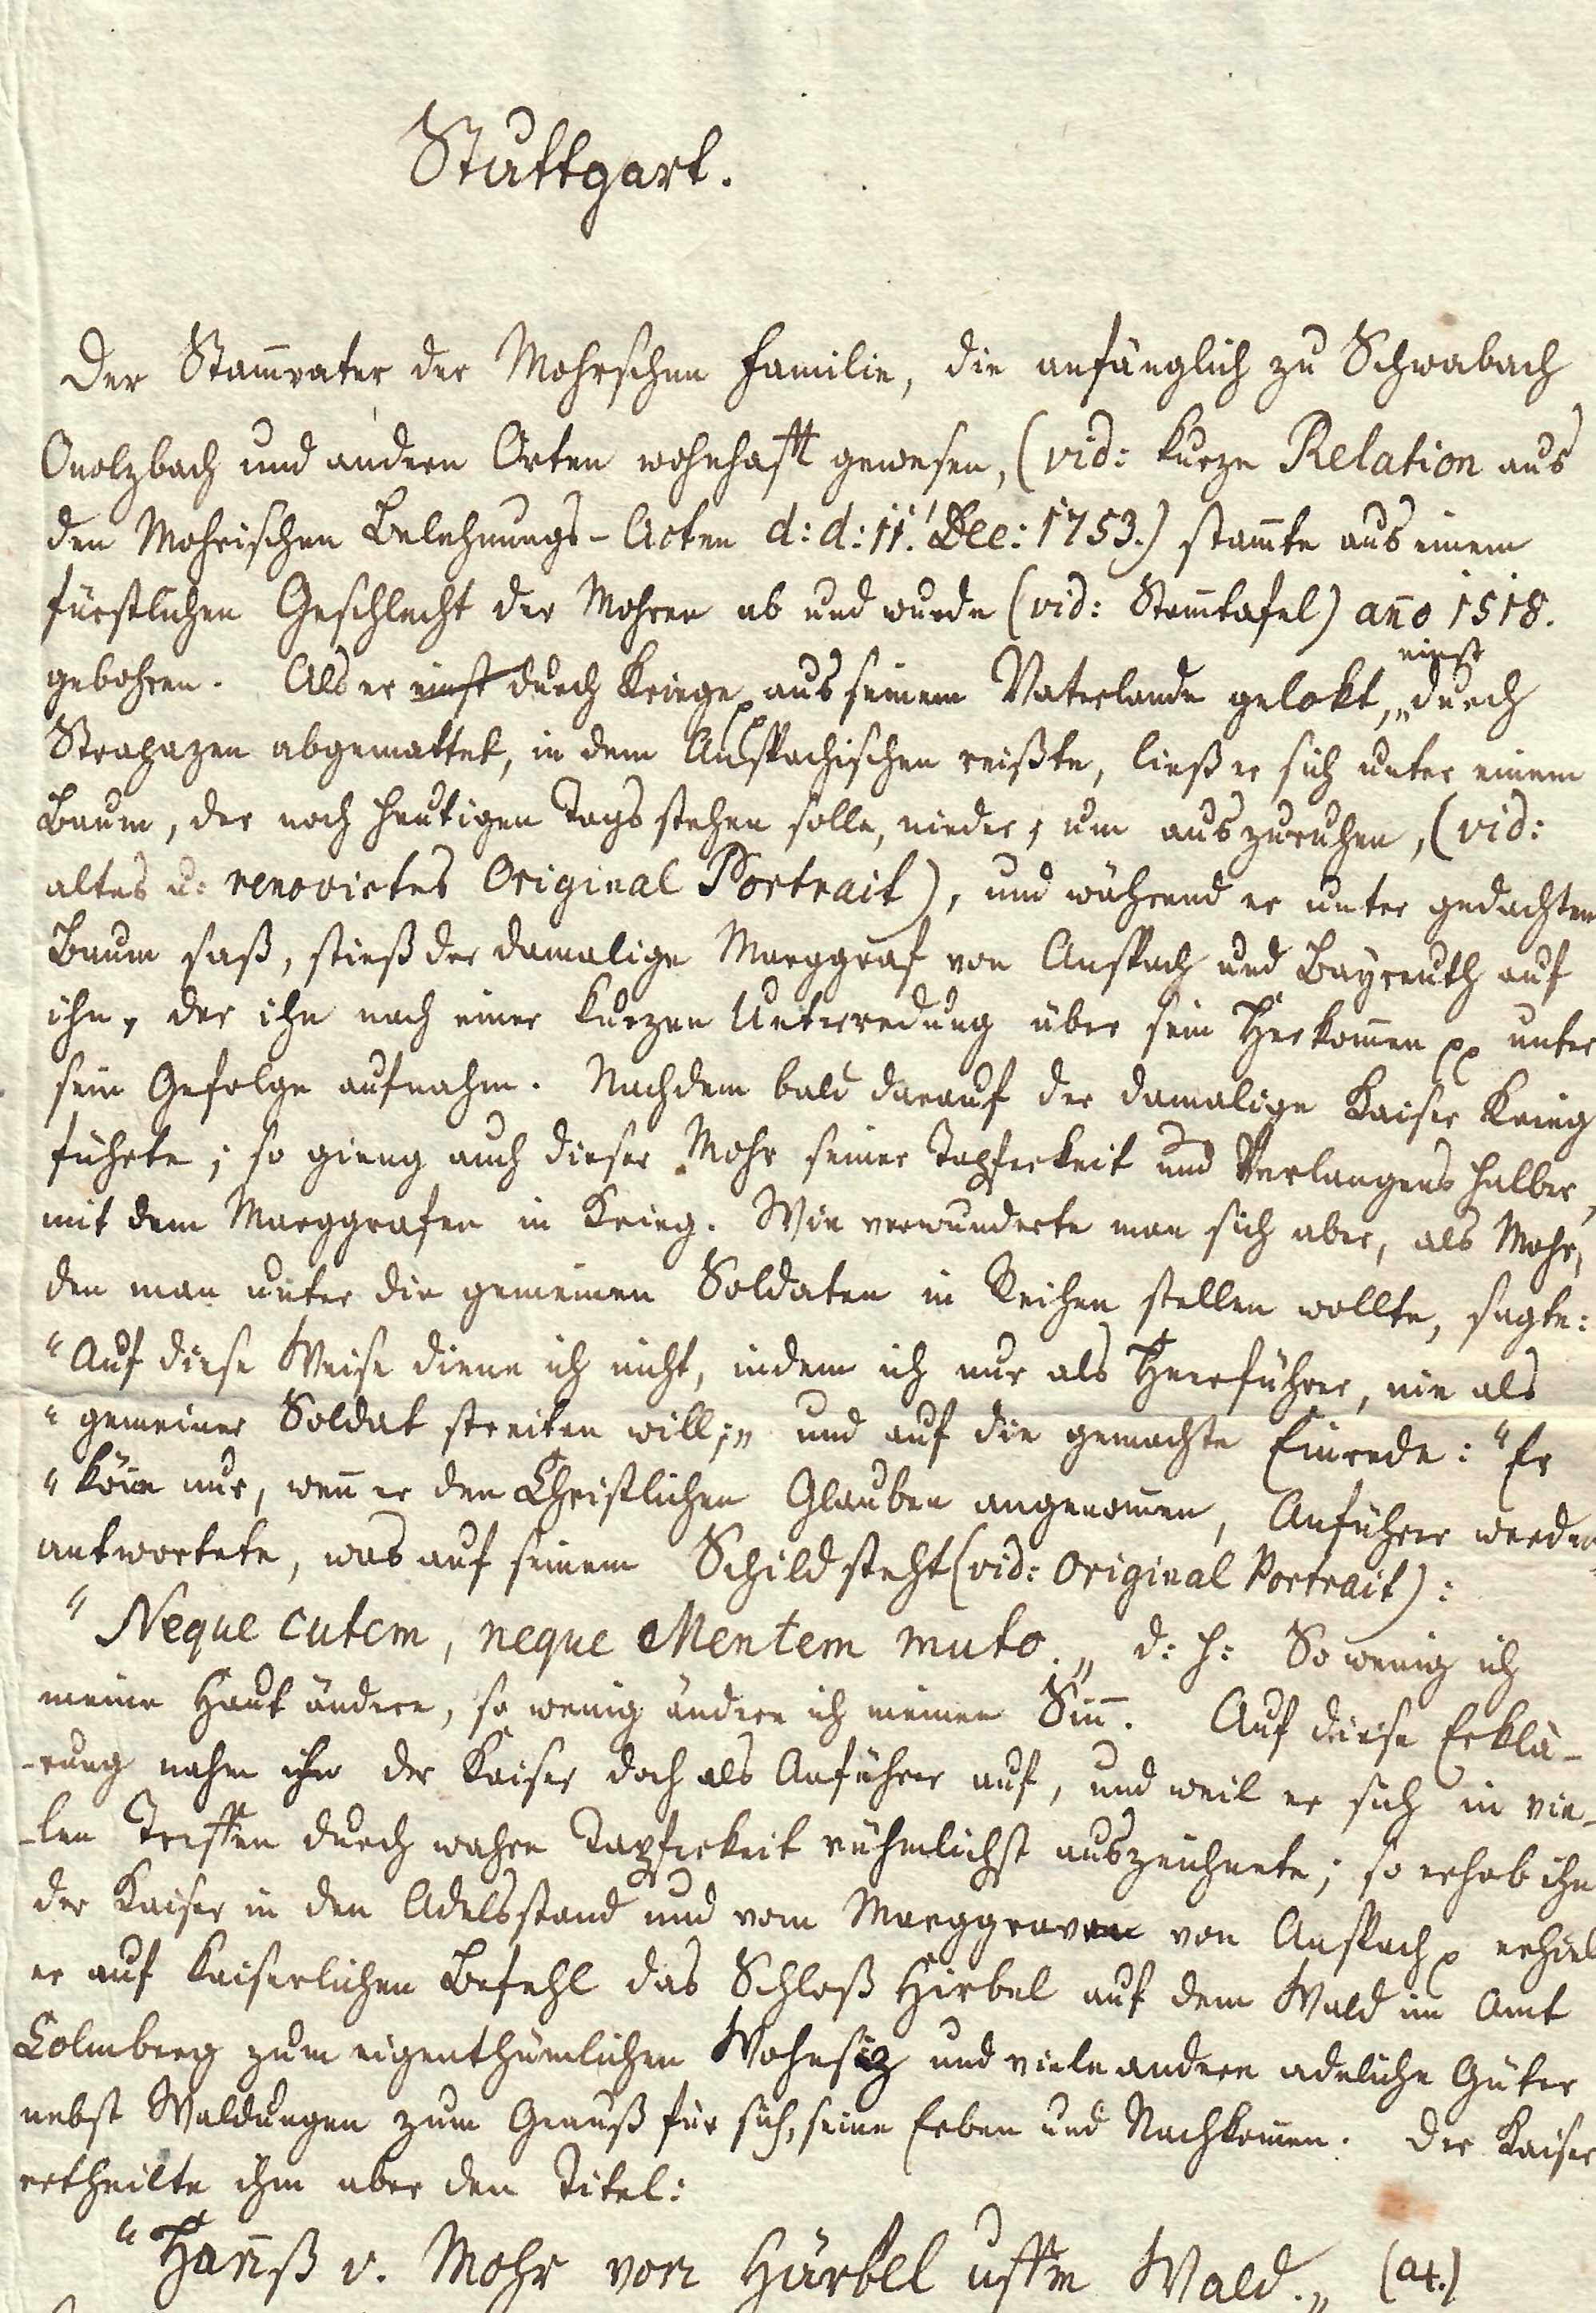 Stuttgart.
Der Stam̄vater der Mohrschen Familie, die anfänglich zu Schwabach
Onolzbach und andern Orten wohnhafft gewesen, (vid: kurze Relation aus
den Mohrischen Belehnungs-Acten d: d: 11! Dec: 1753.) stam̄te aus einem
fürstlichen Geschlecht der Mohren ab und wurde (vid: Stam̄tafel) an̄o 1518.
gebohren. Als er einst durch Kriege aus seinem Vaterlande gelokt, einst „durch
Strapazen abgemattet, in dem Anspachischen reißte, ließ er sich unter einem
Baum, der noch heutigen Tags stehen solle, nieder, um auszuruhen, (vid:
altes u: renovirtes Original Portrait), und während er unter gedachten
Baum saß, stieß der damalige Marggraf von Anspach und Bayreuth auf
ihn, der ihn nach einer kurzen Unterredung über sein Herkom̄en pp unter
sein Gefolge aufnahm. Nachdem bald darauf der damalige Kaiser Krieg
führte; so gieng auch dieser Mohr seiner Tapferkeit und Verlangens halber,
mit dem Marggrafen in Krieg. Wie verwunderte man sich aber, als Mohr,
den man unter die gemeinen Soldaten in Reihen stellen wollte, sagte:
"Auf diese Weise diene ich nicht, indem ich nur als Heerführer, nie als
"gemeiner Soldat streiten will;„ und auf die gemachte Einrede: "Er
"kön̄e nur, wen̄ er den Christlichen Glauben angenom̄en, Anführer werden
antwortete, was auf seinem Schild steht (vid: Original Portrait):
"Neque cutem, neque Mentem muto.„ d: h: So wenig ich
meine Haut ändere, so wenig ändere ich meinen Sin̄. Auf diese Erklä-
-rung nahm ihn der Kaiser doch als Anführer auf, und weil er sich in vie-
-len Treffen durch wahre Tapferkeit rühmlichst auszeichnete; so erhob ihn
der Kaiser in den Adelsstand und vom Marggraven von Anspach p erhiel
er auf Kaiserlichen Befehl das Schloß Hirbel auf dem Wald im Amt
Colmberg zum eigenthümlichen Wohnsiz und viele andere adeliche Güter
nebst Waldungen zum Genuß für sich, seine Erben und Nachkom̄en. Der Kaiser
ertheilte ihm aber den Titel:
"Han̄ß v. Mohr von Härbel uffm Wald.„ (at.)